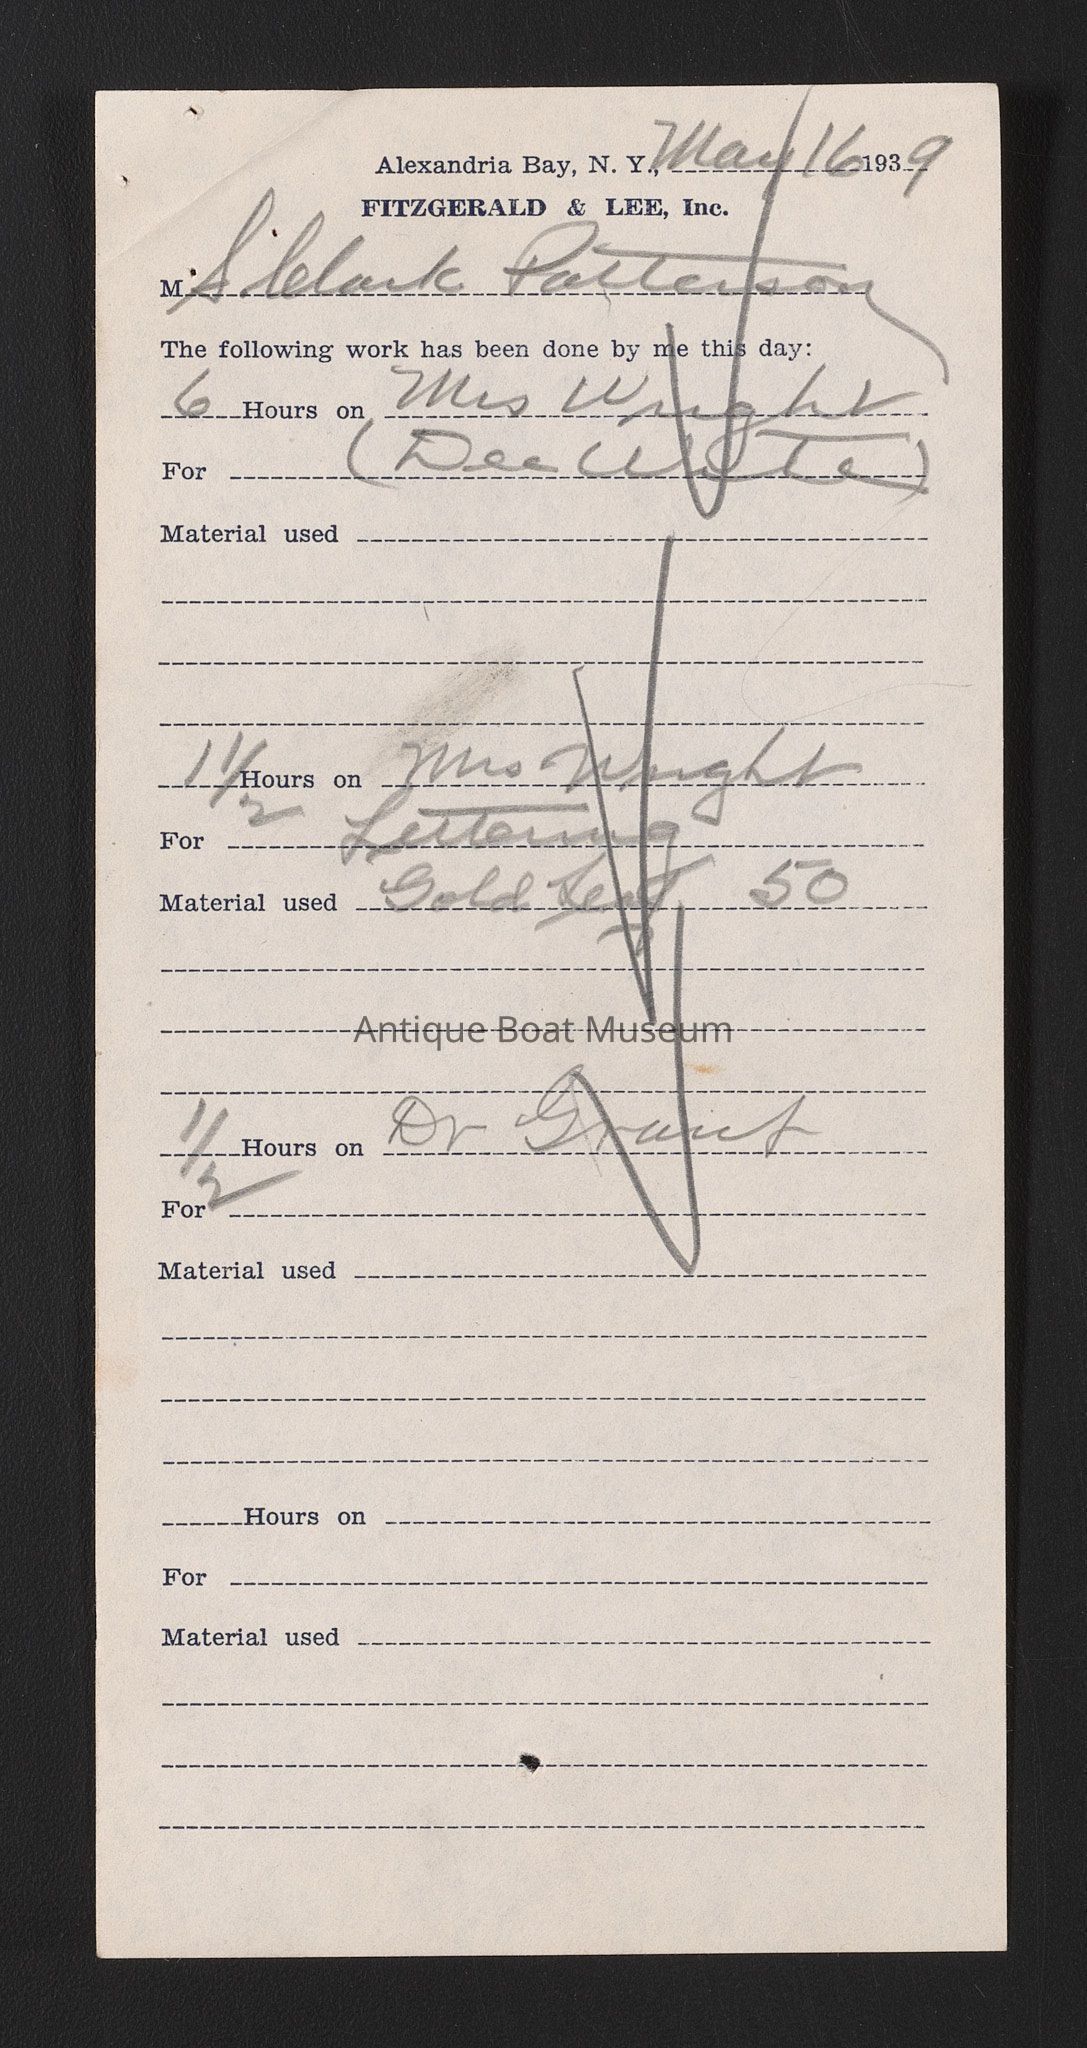 Alexandria Bay, N. Y., May 16 1939
FITZGERALD & LEE, Inc.
M S Clark Patterson
The following work has been done by me this day:
6 Hours on Mrs Wright
For (Dee Wite)
Material used
1 1/2 Hours on Mrs Wright
For Lettering
Material used Gold Leaf 50
Antique Boat Museum
1/2 Hours on Dr Grant
For
Material used
Hours on
For
Material used